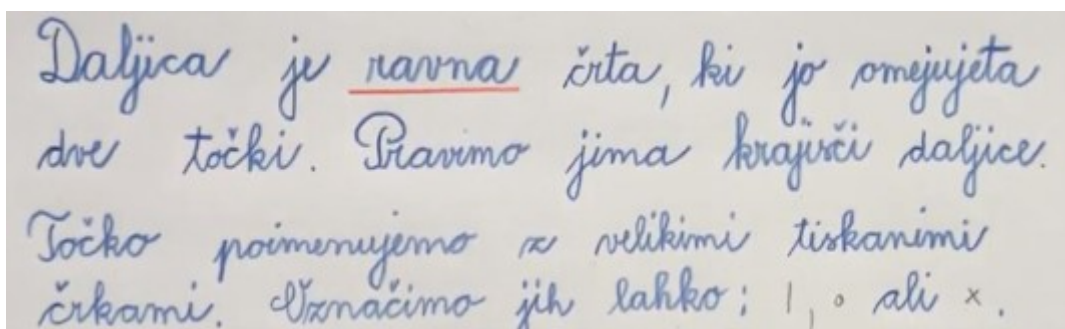 Daljica je ravna črta, ki jo omejujeta
dve točki. Pravimo jima krajišči daljice.
Točko poimenujemo z velikimi tiskanimi
črkami. Označimo jih lahko; |, o ali x.